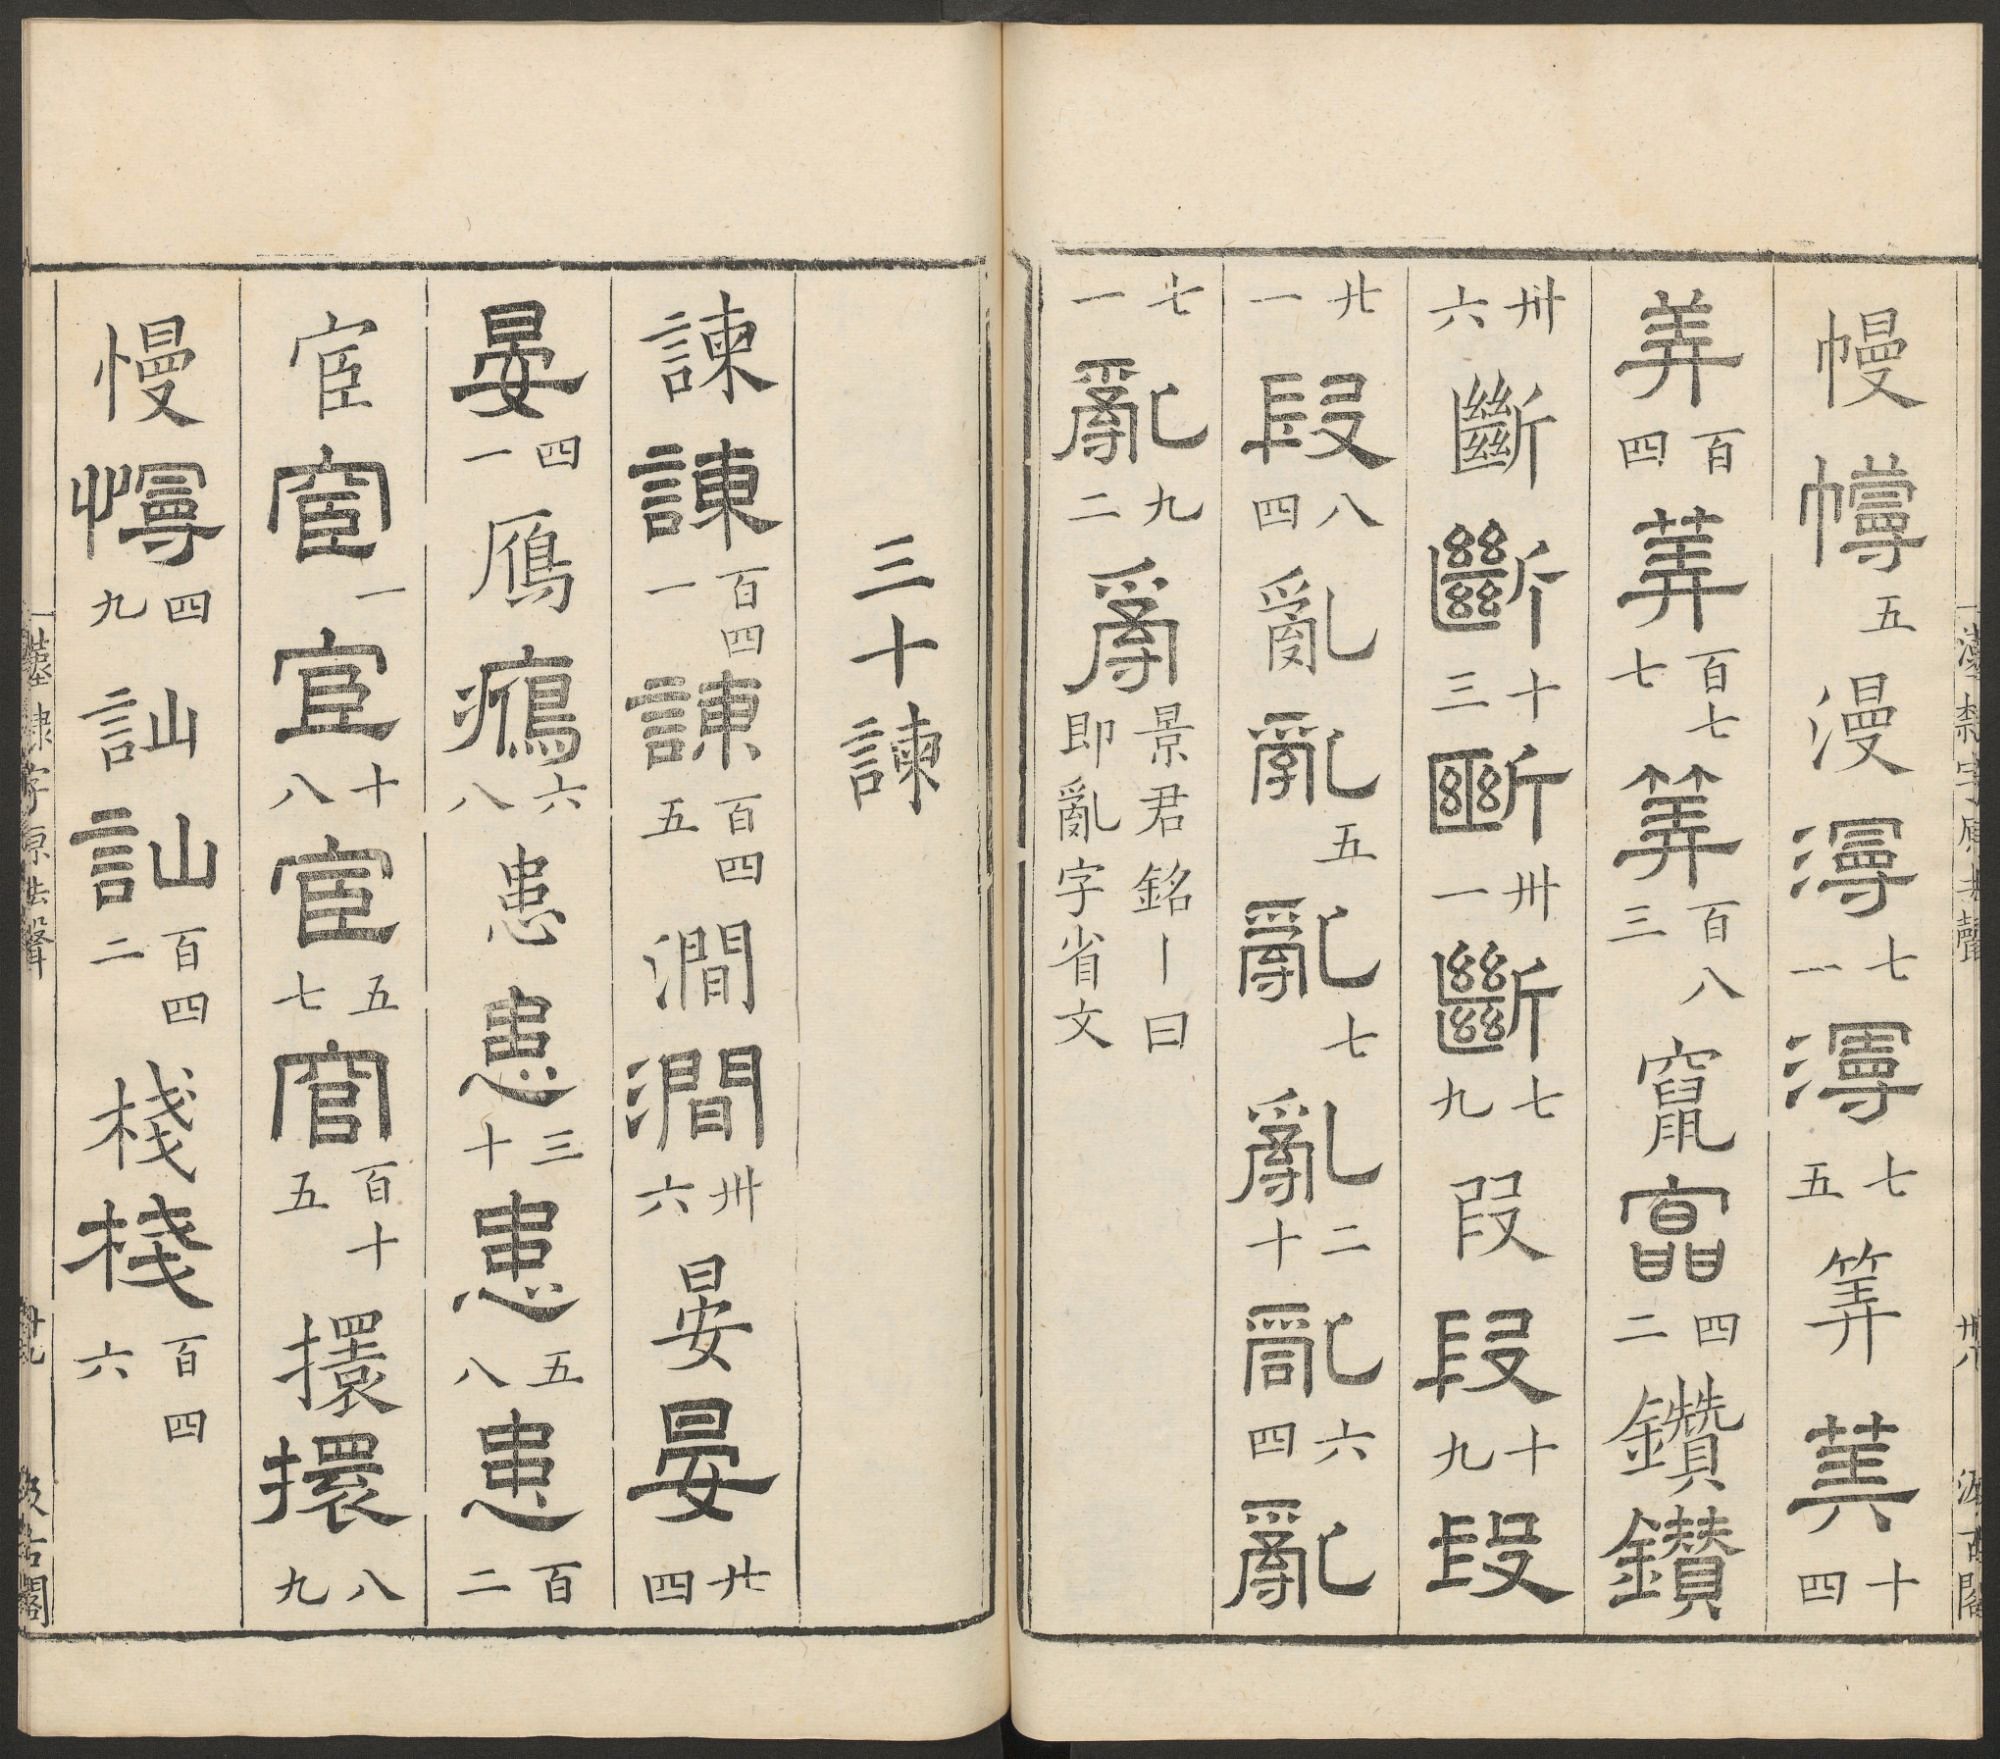 幔幔五漫漫七一漫七五筭筭十四
筭百四筭百七七筭百八三竄竄四二鑽鑽
卅六斷斷十三斷卅一斷七九段段十九段
廿一段八四亂亂五亂七亂二十亂六四亂
七一亂九二𤔔景君銘丨曰即亂字省文
三十諫
諫諫百四一諫百四五澗澗卅六晏晏廿四
晏四一鴈鴈六八患患三十患五八患百二
宦宦一宦十八宦五七宦百十五擐擐八九
慢慢四九訕訕百四二棧棧百四六
漢隸字原去聲 卅八 汲古閣
漢隸字原去聲 卅九 汲古閣